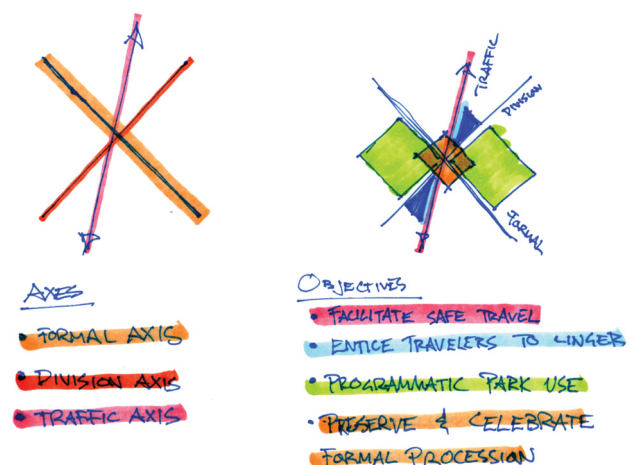 TRAFFIC
DIVISION
FORMAL
AXES
• FORMAL AXIS
• DIVISION AXIS
• TRAFFIC AXIS
OBJECTIVES
• FACILITATE SAFE TRAVEL
• ENTICE TRAVELERS TO LINGER
• PROGRAMMATIC PARK USE
• PRESERVE & CELEBRATE
FORMAL PROCESSION